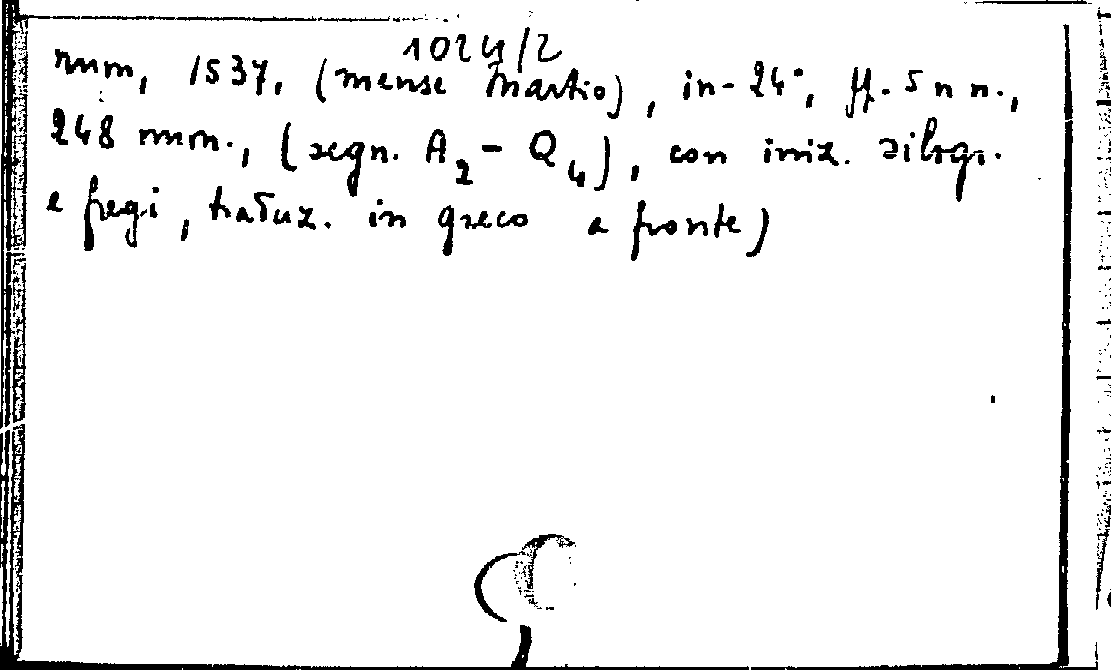 1024/2
num, 1537, (mense Martio), in-24°, ff. 5 n n.,
248 num., (segn. A2 - Q4), con iniz. silogr.
e fregi, traduz. in greco a fronte)